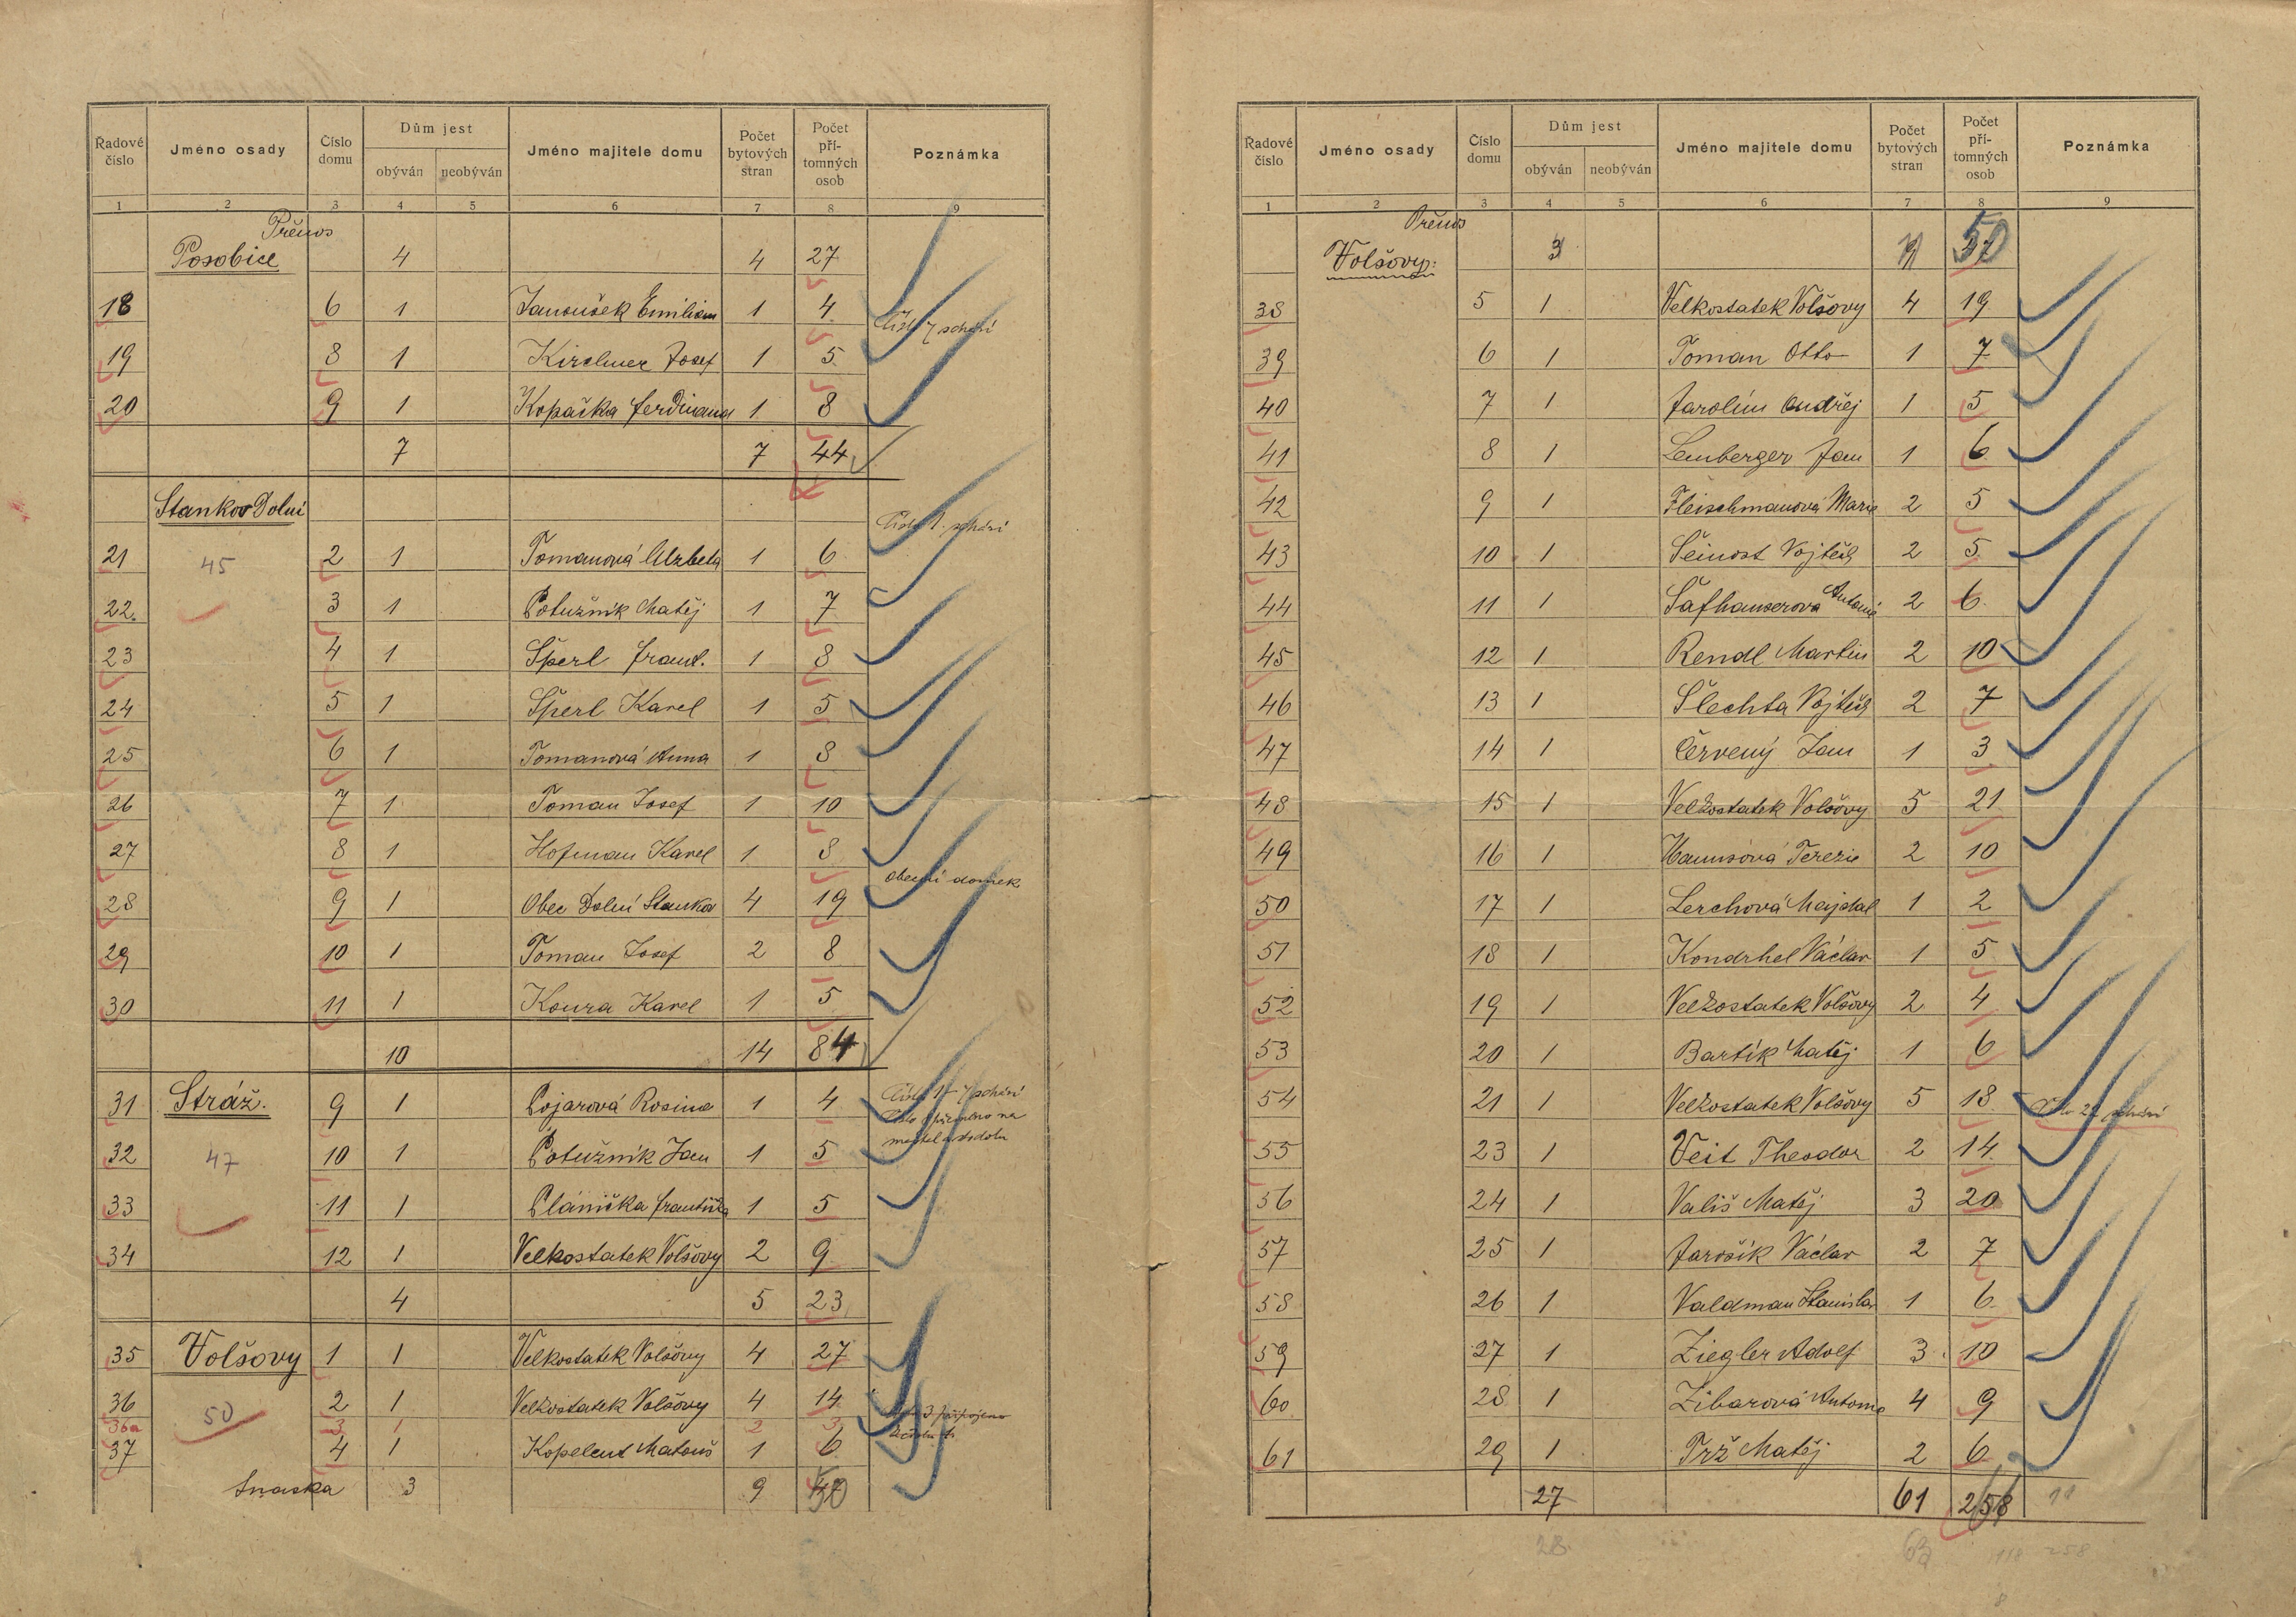 Řadové číslo | Jméno osady | Číslo domu | Dům jest obýván | neobýván | Jméno majitele domu | Počet bytových stran | Počet přítomných osob | Poznámka
1 2 3 4 5 6 7 8 9
Přenos
Posobice 4 4 27
18 6 1 Janoušek Emilian 1 4
Číslo 7 schází
19 8 1 Kirchner Josef 1 5
20 9 1 Kopačka Ferdinand 1 8
7 7 44
Stankov Dolní
Číslo 1. schází
21 45 2 1 Tomanová Alzbeta 1 6
22. 3 1 Potužník Matěj 1 7
23 4 1 Šperl Frant. 1 8
24 5 1 Šperl Karel 1 5
25 6 1 Tomanová Anna 1 8
26 7 1 Toman Josef 1 10
27 8 1 Hofman Karel 1 8
obecní domek
28 9 1 Obec Dolní Stankov 4 19
29 10 1 Toman Josef 2 8
30 11 1 Koura Karel 1 5
10 14 84
31 Stráž. 9 1 Pojarová Rosina 1 4 Číslo 1–7 schází
32 47 10 1 Potužník Jan 1 5
33 11 1 Plánička Františka 1 5
34 12 1 Velkostatek Volšovy 2 9
4 5 23
35 Volšovy 1 1 Velkostatek Volšovy 4 27
36 50 2 1 Velkostatek Volšovy 4 14
36a 3 1 2 3
37 4 1 Kopelent Matouš 1 6
Snaska 3 9 50
Řadové číslo | Jméno osady | Číslo domu | Dům jest obýván | neobýván | Jméno majitele domu | Počet bytových stran | Počet přítomných osob | Poznámka
1 2 3 4 5 6 7 8 9
Přenos
Volšovy: 3 9 50
38 5 1 Velkostatek Volšovy 4 19
39 6 1 Toman Otto 1 7
40 7 1 Jarolím Ondřej 1 5
41 8 1 Lemberger Jan 1 6
42 9 1 Fleischmanová Marie 2 5
43 10 1 Šeinost Vojtěch 2 5
44 11 1 Šafhauserová Antonie 2 6
45 12 1 Rendl Martin 2 10
46 13 1 Šlechta Vojtěch 2 7
47 14 1 Červený Jan 1 3
48 15 1 Velkostatek Volšovy 5 21
49 16 1 Hanusová Terezie 2 10
50 17 1 Lerchová Majdal 1 2
51 18 1 Kondrhel Václav 1 5
52 19 1 Velkostatek Volšovy 2 4
53 20 1 Bartík Matěj 1 6
54 21 1 Velkostatek Volšovy 5 18 Číslo 22 schází
55 23 1 Veit Theodor 2 14
56 24 1 Vališ Matěj 3 20
57 25 1 Jarošík Václav 2 7
58 26 1 Valdman Stanislav 1 6
59 27 1 Ziegler Adolf 3 10
60 28 1 Zibarová Antonie 4 9
61 29 1 Trž Matěj 2 6
27 61 258 11
28 63 258
8